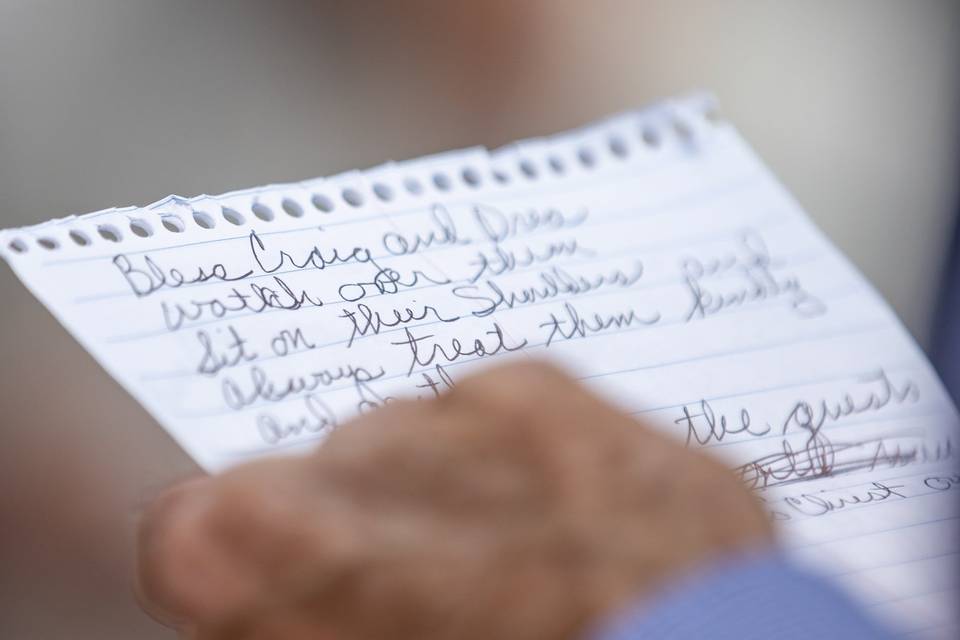 Bless Craig and Drea
watch over them
Sit on their Shoulders and
always treat them kindly
and
the guests
Christ